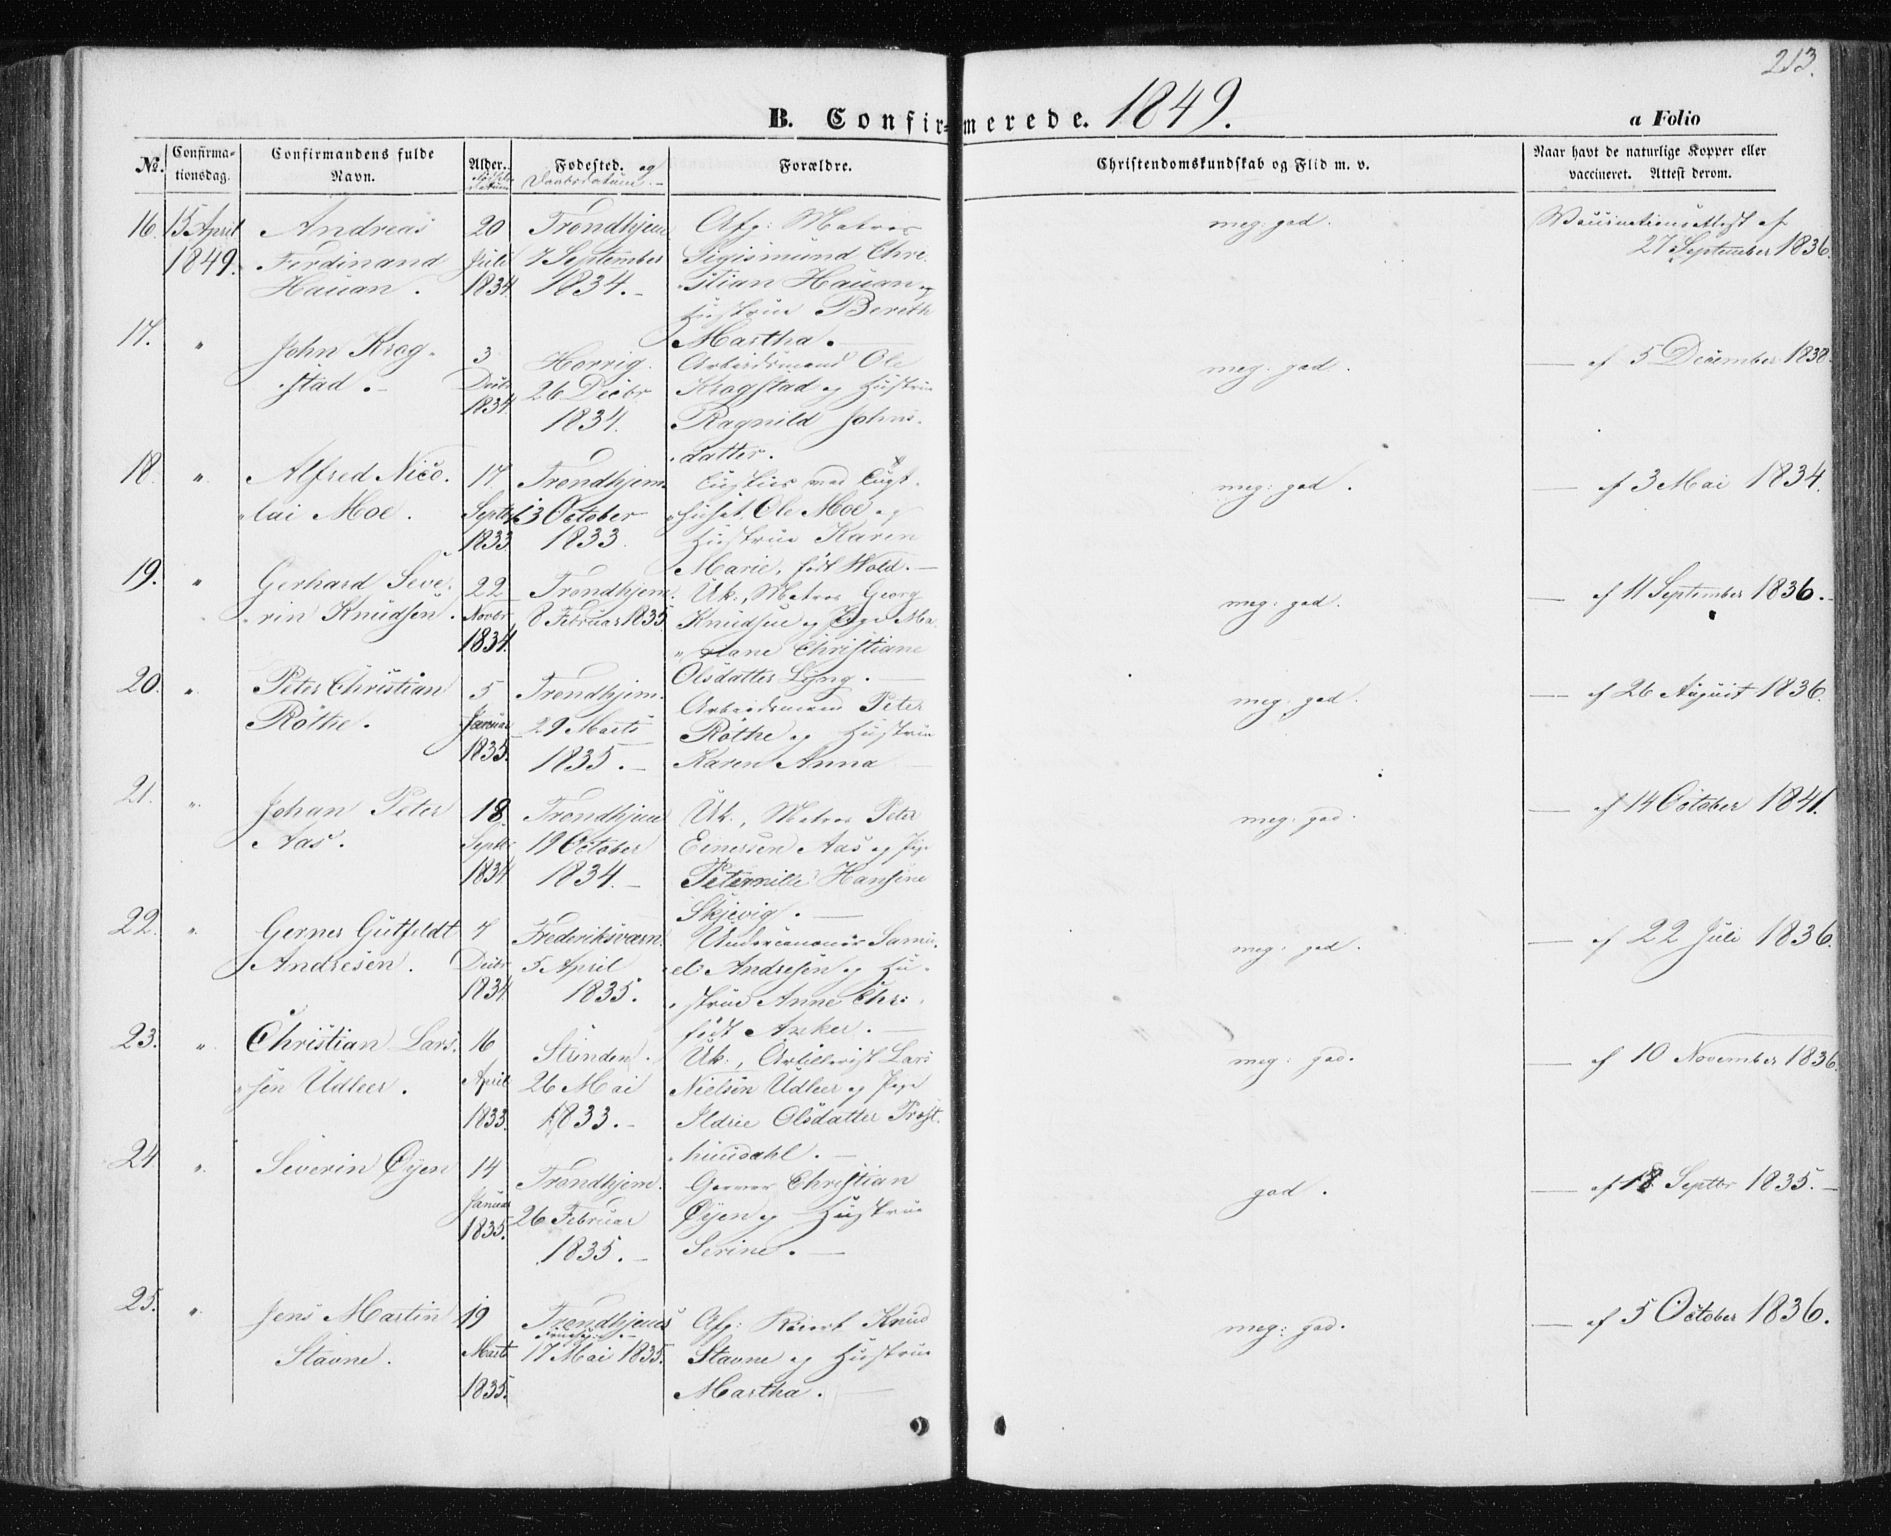 213.
B. Confirmerede. 1849.
a Folio
No. Confirmationsdag. Confirmandens fulde Navn. Alder. Fødested. og Daabsdatum. Forældre. Christendomskundskab og Flid m. v. Naar havt de naturlige Kopper eller vaccineret. Attest derom.
16. 15 April Andreas 20 Trondhjem Afg: Matros meg: god. Vaccinationsattest af
1849. Ferdinand Juli 7 September Sigismund Chri- 27 September 1836.
Hauan. 1834. 1834. stian Hauan og
Hustrue Bereth
Martha.
17. " John Krog- 3 Horrig. Arbeidsmand Ole meg: god. af 5 December 1838.
stad. Decbr 26 Decbr Krogstad og Hustrue
1834. 1834. Ragnild Johns-
datter.
18. " Alfred Nico- 17 Trondhjem. ved Tugt- meg: god. af 3 Mai 1834.
lai Moe. Septbr 13 October huset, Ole Moe og
1833. 1833. Hustrue Karen
Marie, født Wold.
19. " Gerhard Seve- 22 Trondhjem. Uk., Matros Georg meg: god. af 11 September 1836.
rin Knudsen. Novbr 8 Februar 1835. Knudsen og Pige Ma-
1834. riane Christiane
Olsdatter Lyng.
20. " Peter Christian 5 Trondhjem. Arbeidsmand Peter meg: god. af 26 August 1836.
Röthe. Januar 29 Marts Röthe og Hustrue
1835. 1835. Karen Anna
21. " Johan Peter 18. Trondhjem Uk., Matros Peter meg: god. af 14 October 1841.
Aas. Septbr 19 October Einersen Aas og Pige
1834. 1834. Peternille Hansine
Skjevig.
22. " Gerner Gutfeldt 7 Frederiksværn. Undercanoner Samu- meg: god. af 22 Juli 1836.
Andresen. Decbr 5 April el Andresen og Hu-
1834. 1835. strue Anne Chr:
født Anker.
23. " Christian Lars- 16 Strinden. Uk., Artillerist Lars meg: god. af 10 November 1836.
sen Udleer. April 26 Mai Nielsen Udleer og Pige
1833. 1833. Ildrie Olsdatter
24. " Severin Öyen 14 Trondhjem. Garver Christian god. af 18 Septbr 1835.
Januar 26 Februar Öyen og Hustrue
1835. 1835. Serine.
25. " Jens Martin 19 Trondhjems Afg: Knud meg: god. af 5 October 1836.
Stavne. Marts 17 Mai 1835. Stavne og Hustrue
1835. Martha.